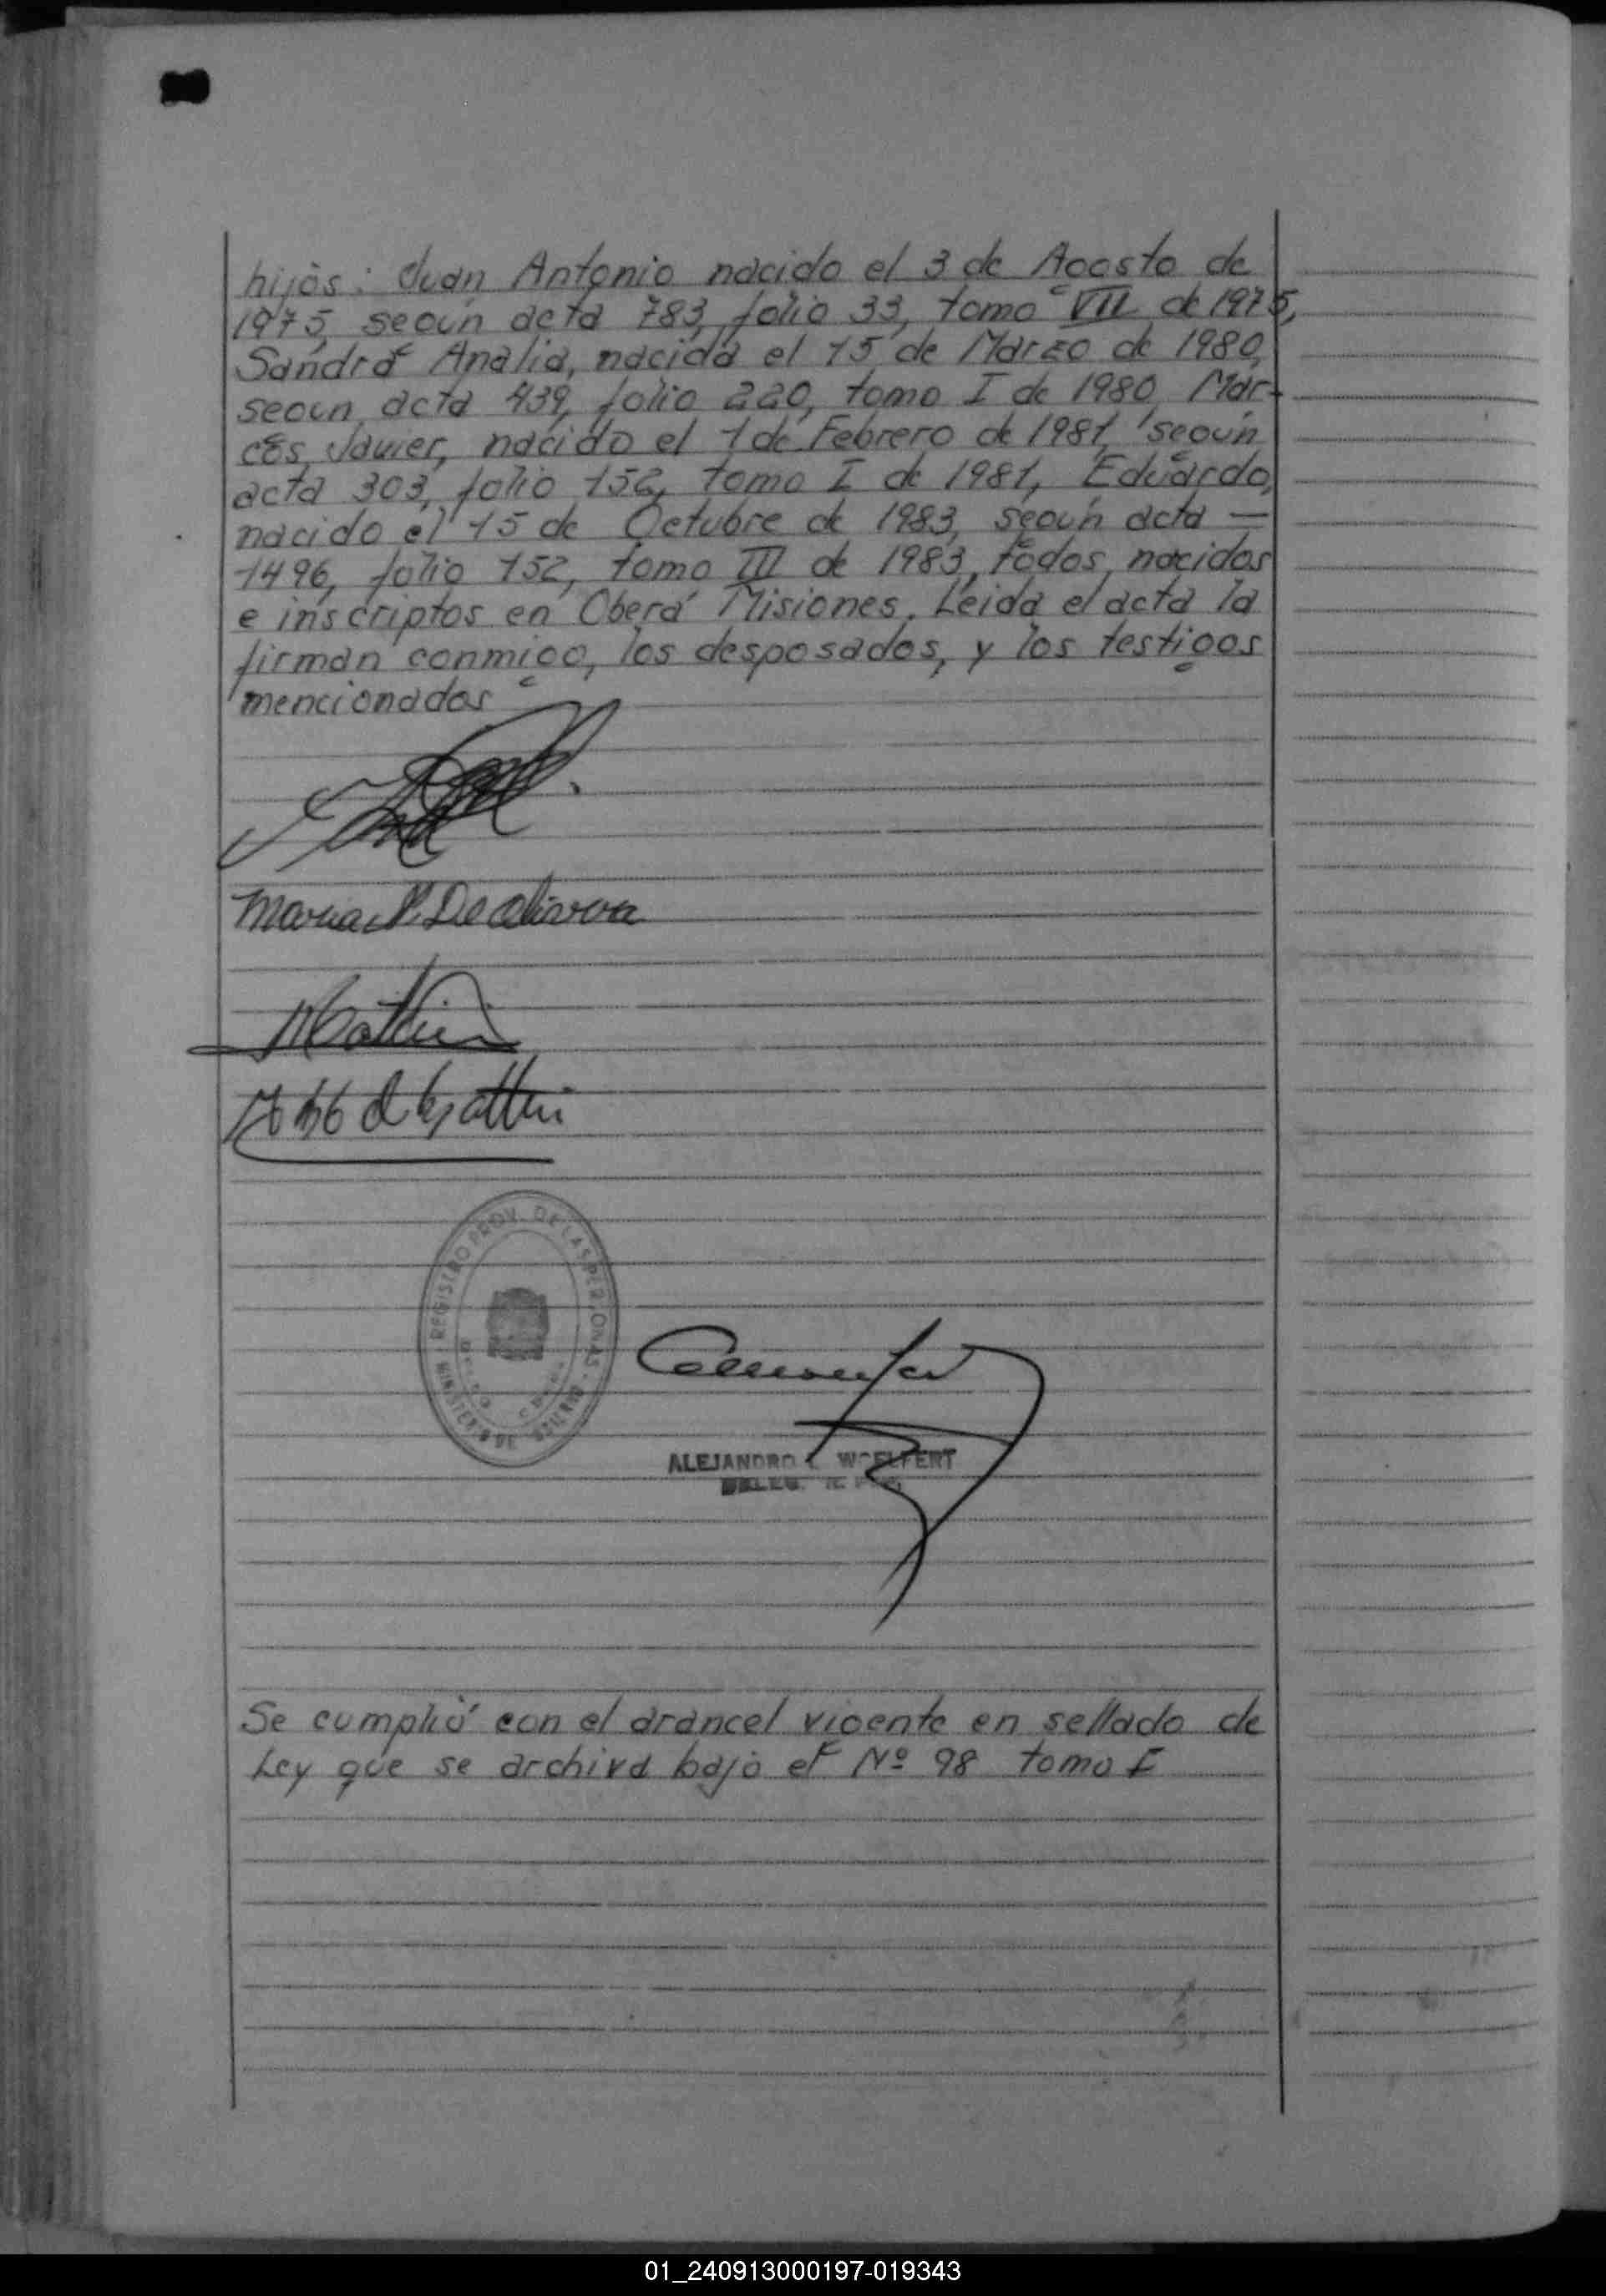 hijos: Juan Antonio nacido el 3 de Agosto de
1975, según acta 783, folio 33, tomo VII de 1975,
Sandra Analia, nacida el 15 de Marzo de 1980,
segun acta 439, folio 220, tomo I de 1980, Mar-
cos Javier, nacido el 1 de Febrero de 1981, según
acta 303, folio 152, tomo I de 1981, Eduardo,
nacido el 15 de Octubre de 1983, según acta —
1496, folio 152, tomo III de 1983, todos nacidos
e inscriptos en Oberá Misiones. Leida el acta la
firman conmigo, los desposados, y los testigos
mencionados
Maria De Olivera
REGISTRO PROV. DE LAS PERSONAS
MINISTERIO DE GOBIERNO
ALEJANDRO WOELFERT
DELEG.
Se cumplió con el arancel vigente en sellado de
Ley que se archiva bajo el Nº 98 tomo I
01_240913000197-019343